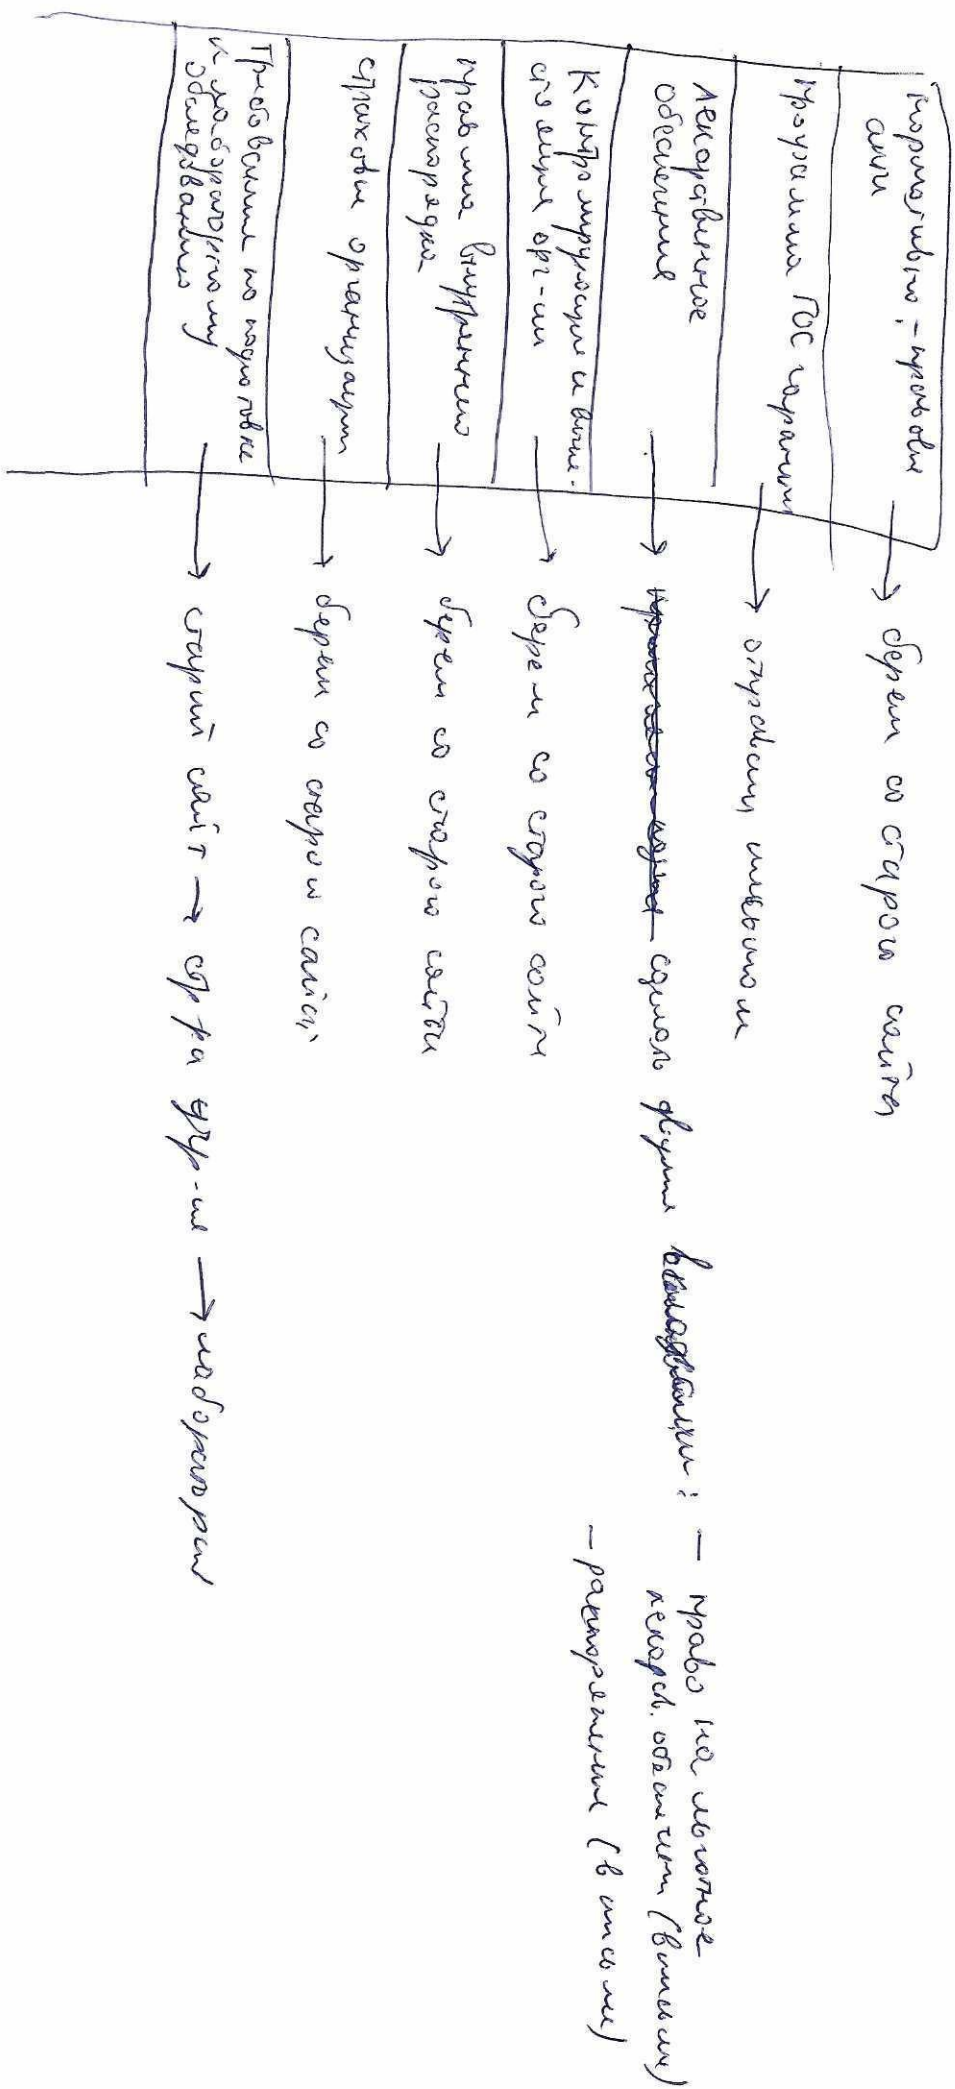 Нормативно-правовые
акты → берем со старого сайта
Программа ГОС гарантий → отправим письмом
Лекарственное
обеспечение → сделать двумя вкладками: – право на льготное
лекарств. обеспечение (в письме)
– распоряжения (в письме)
Контролирующие и выше-
стоящие орг-ии → берем со старого сайта
Правила внутреннего
распорядка → берем со старого сайта
Страховые организации → берем со старого сайта
Требования по подготовке
к лабораторному
обследованию → старый сайт → стр-ра учр-ия → лаборатория